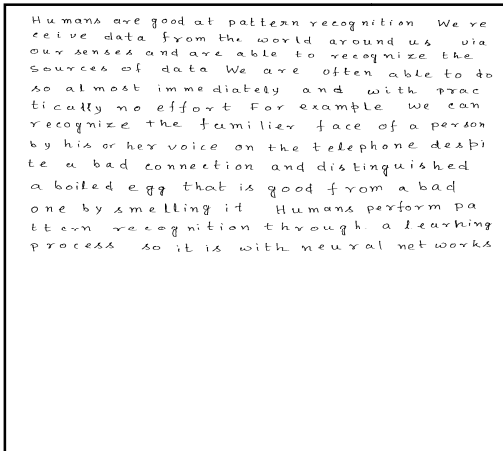 Humans are good at pattern recognition We re
ceive data from the world around us via
our senses and are able to recognize the
Sources of data We are often able to do
so almost immediately and with prac
tically no effort For example we can
recognize the familier face of a person
by his or her voice on the telephone despi
te a bad connection and distinguished
a boiled egg that is good from a bad
one by smelling it Humans perform pa
ttern recognition through a learning
process so it is with neural networks